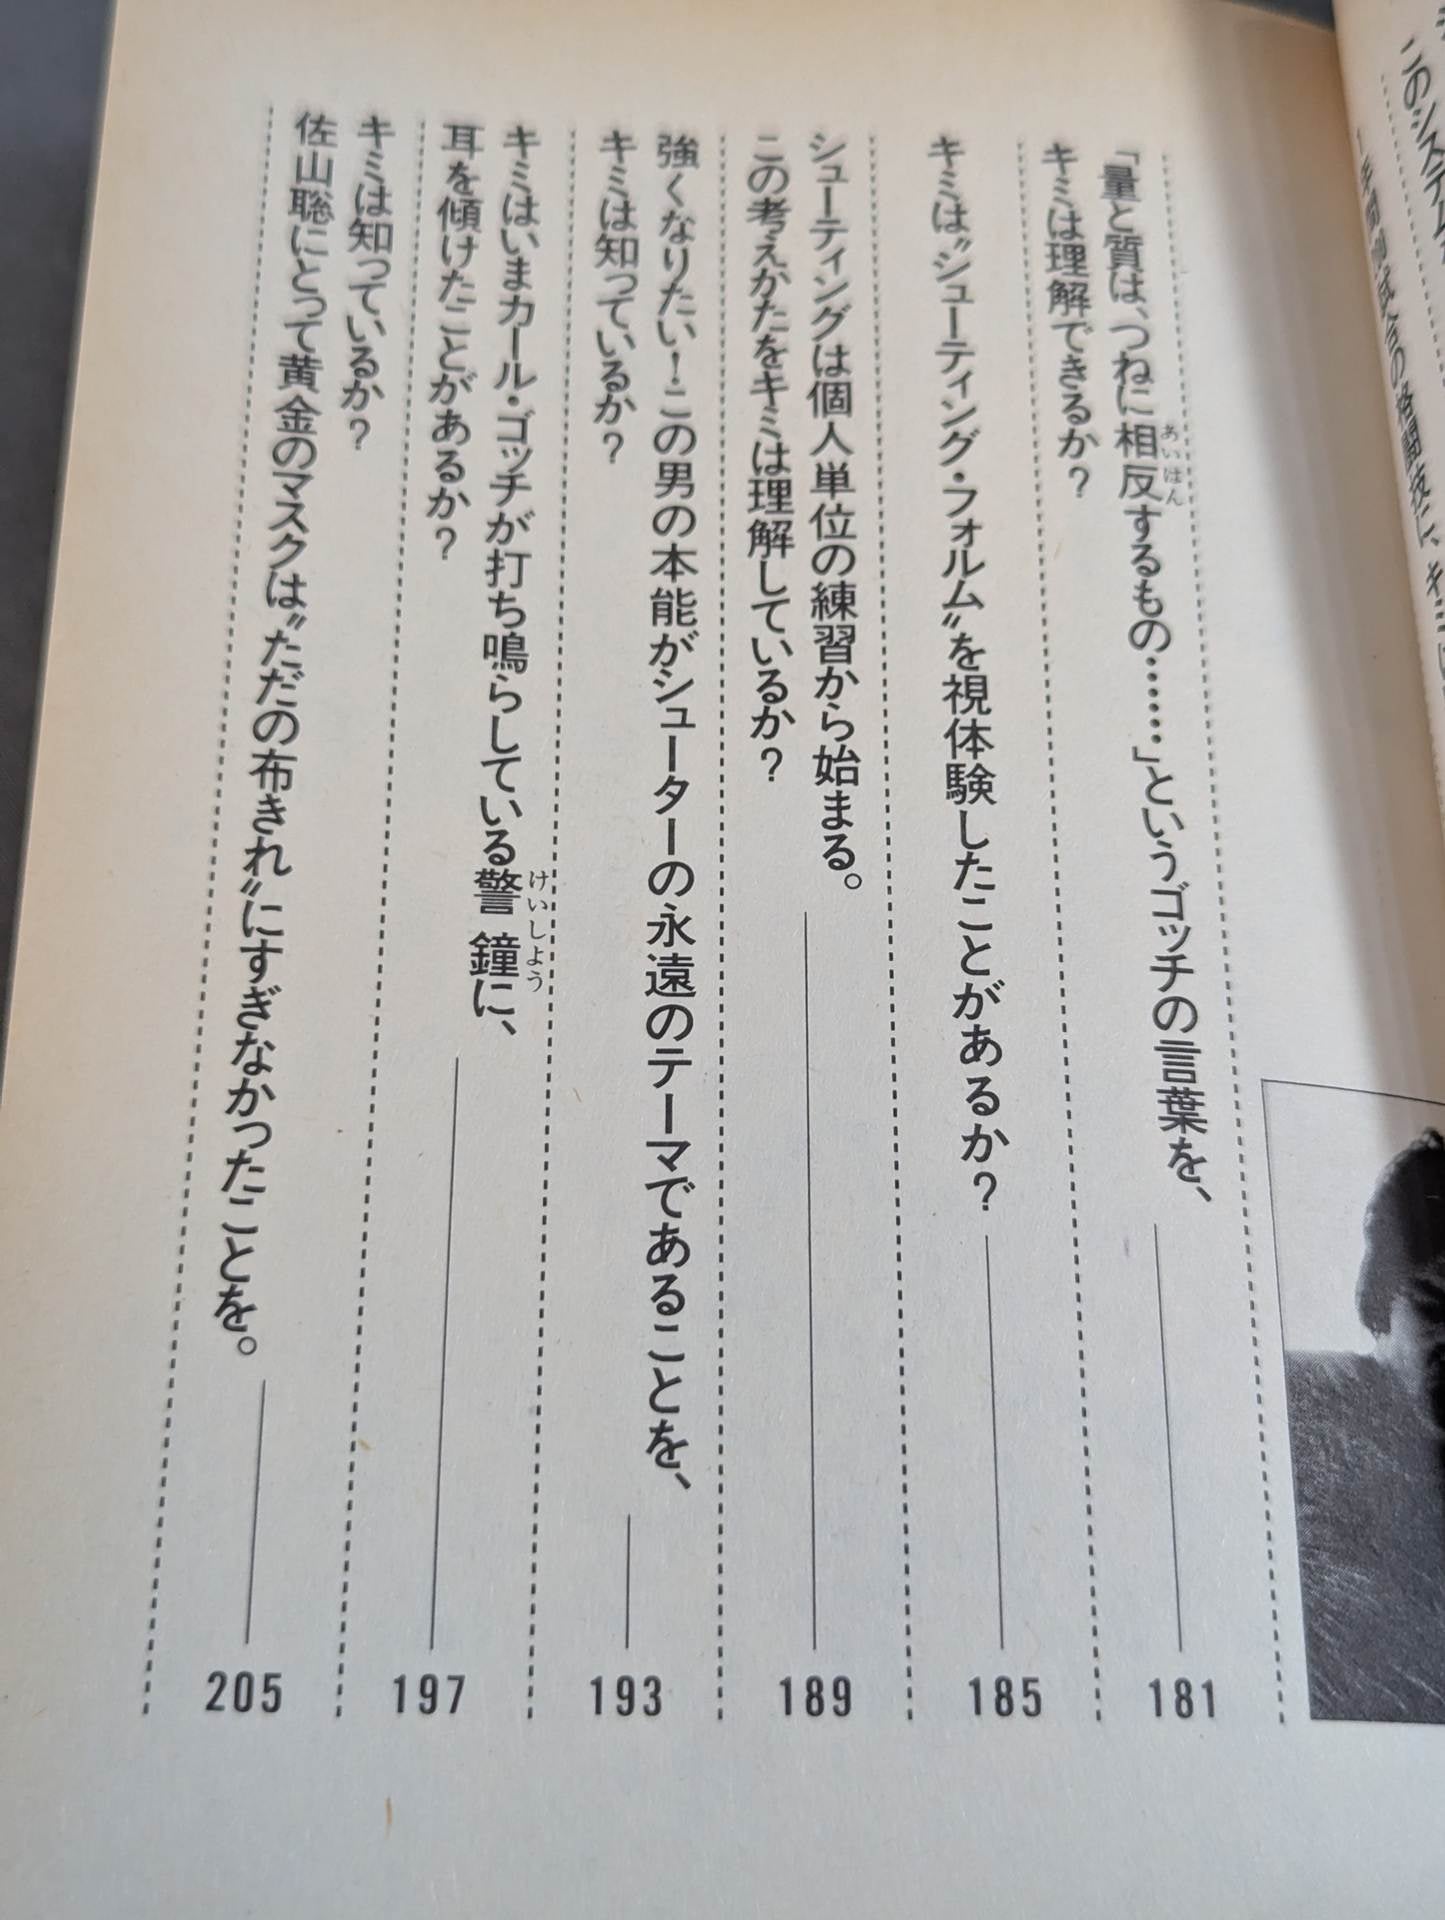 このシステム
「量と質は、つねに相反するもの……」というゴッチの言葉を、
あいはん
キミは理解できるか？
181
キミは〝シューティング・フォルム〟を視体験したことがあるか？
185
シューティングは個人単位の練習から始まる。
この考えかたをキミは理解しているか？
189
強くなりたい！この男の本能がシューターの永遠のテーマであることを、
キミは知っているか？
193
キミはいまカール・ゴッチが打ち鳴らしている警鐘に、
けいしよう
耳を傾けたことがあるか？
197
キミは知っているか？
佐山聡にとって黄金のマスクは〝ただの布きれ〟にすぎなかったことを。
205